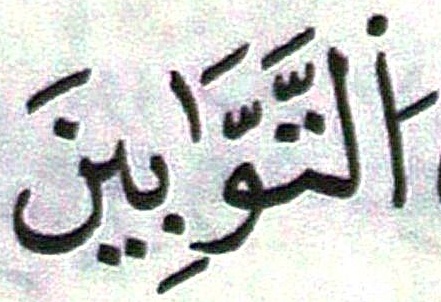 اَ۬لتَّوَّٰبِينَ